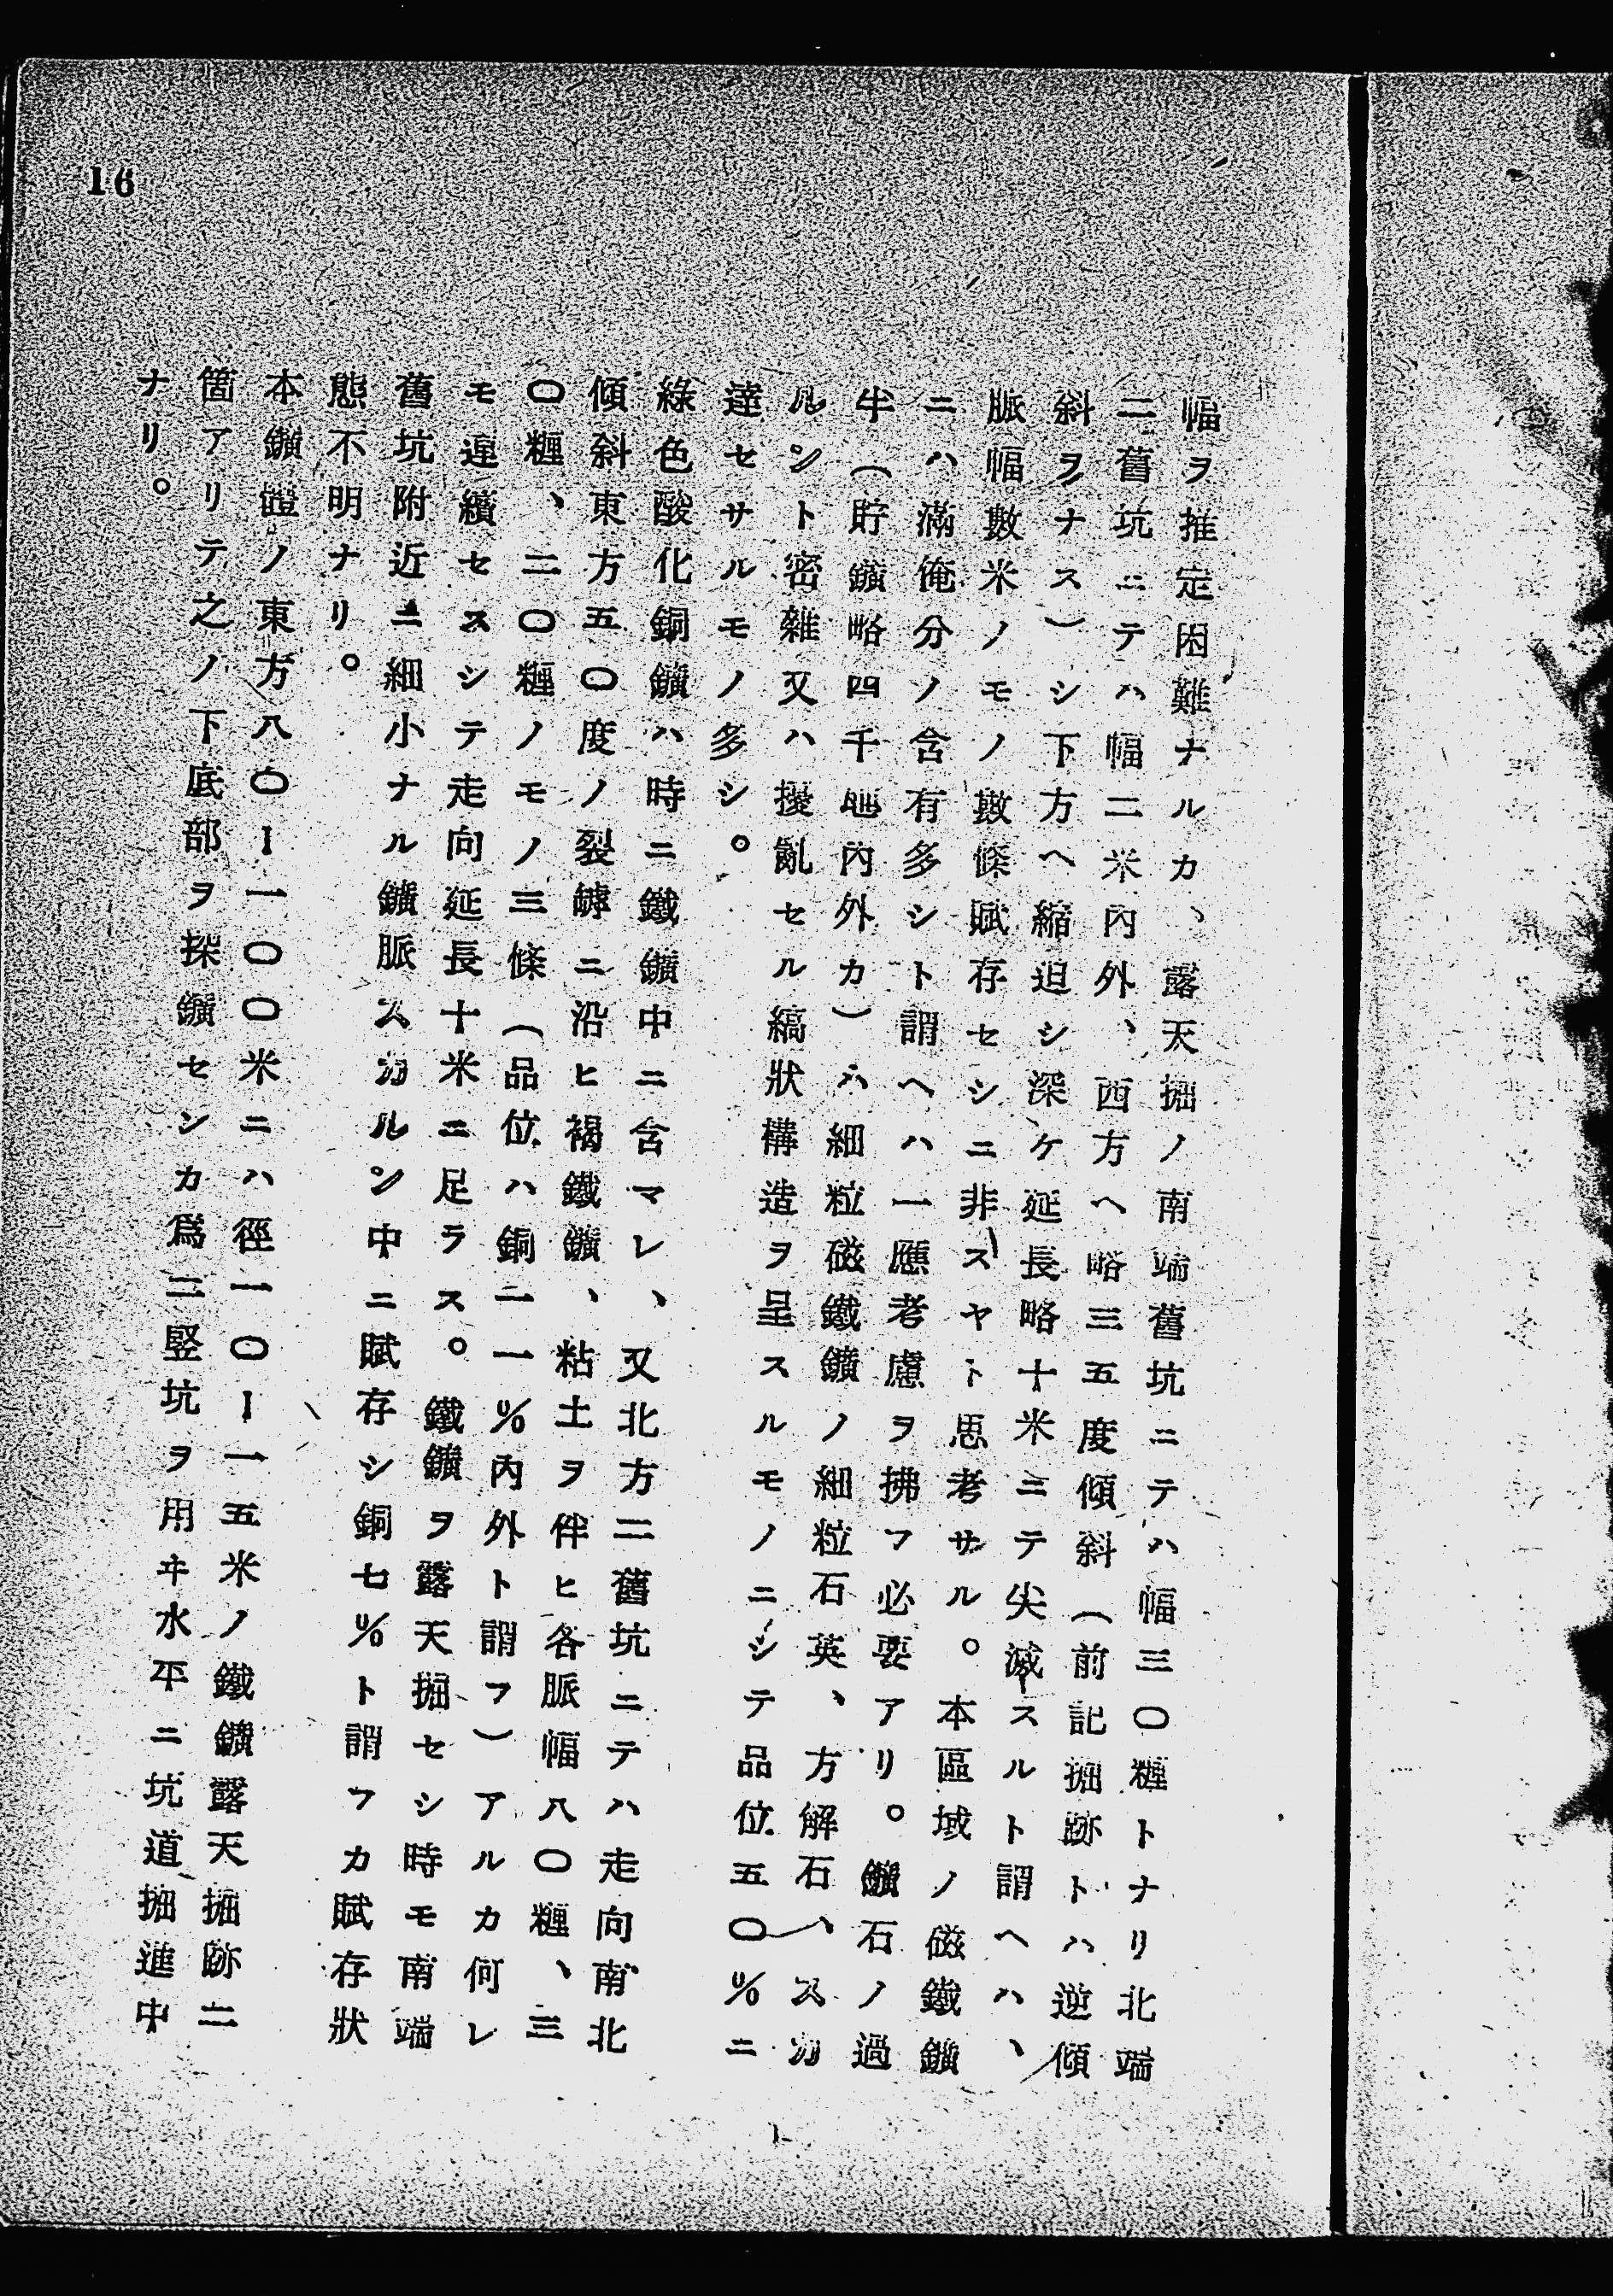 幅ヲ推定困難ナルカ、露天掘ノ南端舊坑ニテハ幅三〇糎トナリ北端
二舊坑ニテハ幅二米內外、西方ヘ略三五度傾斜（前記掘跡トハ逆傾
斜ヲナス）シ下方ヘ縮迫シ深ケ延長略十米ニテ尖滅スルト謂ヘハ、
脈幅數米ノモノ數條賦存セシニ非スヤト思考サル。本區域ノ磁鐵鑛
ニハ滿俺分ノ含有多シト謂ヘハ一應考慮ヲ拂フ必要アリ。鑛石ノ過
半（貯鑛略四千瓲內外カ）ハ細粒磁鐵鑛ノ細粒石英、方解石、スカ
ルント密雜又ハ擾亂セル縞狀構造ヲ呈スルモノニシテ品位五〇％ニ
達セサルモノ多シ。
綠色酸化銅鑛ハ時ニ鐵鑛中ニ含マレ、又北方二舊坑ニテハ走向南北
傾斜東方五〇度ノ裂罅ニ沿ヒ褐鐵鑛、粘土ヲ伴ヒ各脈幅八〇糎、三
〇糎、二〇糎ノモノ三條（品位ハ銅二一％內外ト謂フ）アルカ何レ
モ連續セスシテ走向延長十米ニ足ラス。鐵鑛ヲ露天掘セシ時モ南端
舊坑附近ニ細小ナル鑛脈スカルン中ニ賦存シ銅七％ト謂フカ賦存狀
態不明ナリ。
本鑛體ノ東方八〇ー一〇〇米ニハ徑一〇ー一五米ノ鐵鑛露天掘跡二
箇アリテ之ノ下底部ヲ探鑛セシカ爲二竪坑ヲ用ヰ水平ニ坑道掘進中
ナリ。
16